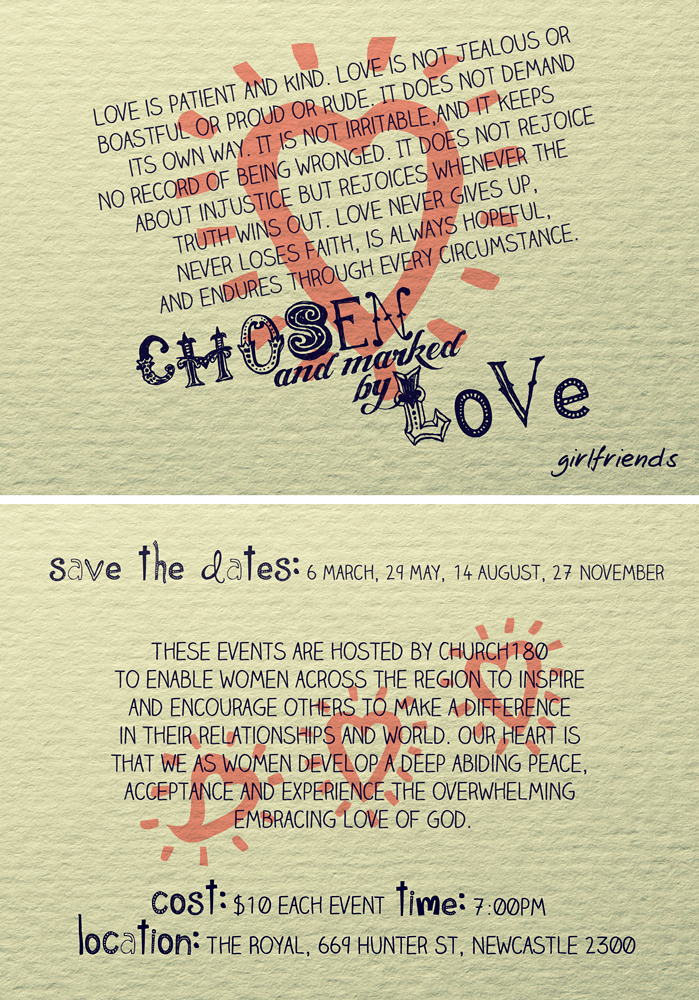 LOVE IS PATIENT AND KIND. LOVE IS NOT JEALOUS OR
BOASTFUL OR PROUD OR RUDE. IT DOES NOT DEMAND
ITS OWN WAY. IT IS NOT IRRITABLE,AND IT KEEPS
NO RECORD OF BEING WRONGED. IT DOES NOT REJOICE
ABOUT INJUSTICE BUT REJOICES WHENEVER THE
TRUTH WINS OUT. LOVE NEVER GIVES UP,
NEVER LOSES FAITH, IS ALWAYS HOPEFUL,
AND ENDURES THROUGH EVERY CIRCUMSTANCE.
CHOSEN
and marked
by LoVe
girlfriends
save the dates: 6 MARCH, 29 MAY, 14 AUGUST, 27 NOVEMBER
THESE EVENTS ARE HOSTED BY CHURCH180
TO ENABLE WOMEN ACROSS THE REGION TO INSPIRE
AND ENCOURAGE OTHERS TO MAKE A DIFFERENCE
IN THEIR RELATIONSHIPS AND WORLD. OUR HEART IS
THAT WE AS WOMEN DEVELOP A DEEP ABIDING PEACE,
ACCEPTANCE AND EXPERIENCE THE OVERWHELMING
EMBRACING LOVE OF GOD.
cost: $10 EACH EVENT time: 7:00PM
location: THE ROYAL, 669 HUNTER ST, NEWCASTLE 2300